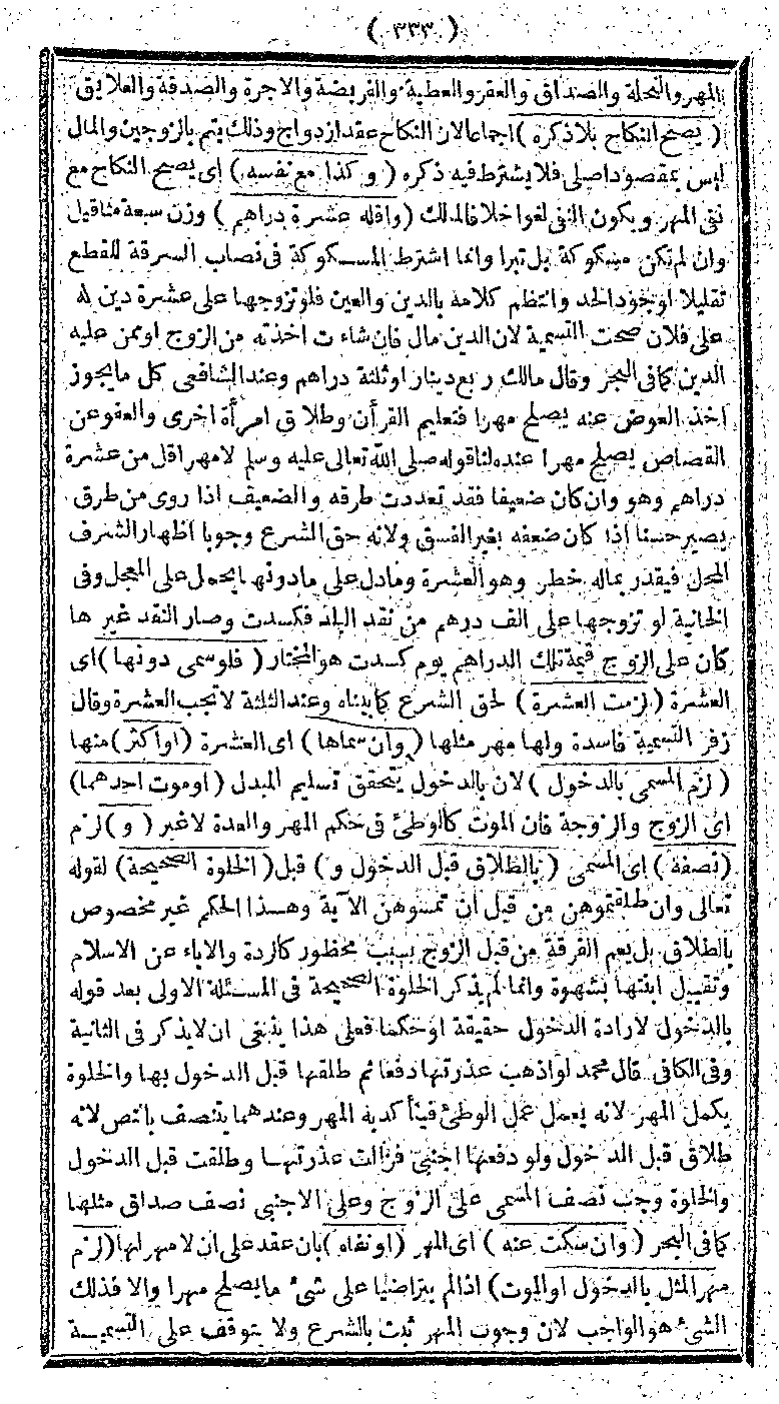 ( ٣٣٣ )
المهر والنحلة والصداق والعقر والعطية والفريضة والاجرة والصدقة والعلايق
( يصح النكاح بلا ذكره ) اجماعا لان النكاح عقد ازدواج وذلك يتم بالزوجين والمال
ليس بمقصود اصلى فلا يشترط فيه ذكره ( و كذا مع نفسه ) اى يصح النكاح مع
نفى المهر ويكون النفى لغوا خلافا لمالك ( واقله عشرة دراهم ) وزن سبعة مثاقيل
وان لم تكن مسكوكة بل تبرا وانما اشترط المسكوكة فى نصاب السرقة للقطع
تقليلا لوجود الحد وانتظم كلامه بالدين والعين فلو تزوجها على عشرة دين له
على فلان صحت التسمية لان الدين مال فان شاءت اخذته من الزوج او ممن عليه
الدين كما فى البحر وقال مالك ربع دينار او ثلثة دراهم وعند الشافعى كل ما يجوز
اخذ العوض عنه يصلح مهرا فتعليم القرأن وطلاق امرأة اخرى والعفو عن
القصاص يصلح مهرا عنده لنا قوله صلى الله تعالى عليه وسلم لا مهر اقل من عشرة
دراهم وهو وان كان ضعيفا فقد تعددت طرقه والضعيف اذا روى من طرق
يصير حسنا اذا كان ضعفه بغير الفسق ولانه حق الشرع وجوبا اظهارا لشرف
المحل فيقدر بماله خطر وهو العشرة وما دل على ما دونها يحمل على المعجل وفى
الخانية لو تزوجها على الف درهم من نقد البلد فكسدت وصار النقد غيرها
كان على الزوج قيمة تلك الدراهم يوم كسدت هو المختار ( فلو سمى دونها ) اى
العشرة ( لزمت العشرة ) لحق الشرع كما بيناه وعند الثلثة لا تجب العشرة وقال
زفر التسمية فاسدة ولها مهر مثلها ( وان سماها ) اى العشرة ( او اكثر ) منها
( لزم المسمى بالدخول ) لان بالدخول يتحقق تسليم المبدل ( او موت احدهما )
اى الزوج والزوجة فان الموت كالوطئ فى حكم المهر والعدة لا غير ( و ) لزم
( نصفه ) اى المسمى ( بالطلاق قبل الدخول و ) قبل ( الخلوة الصحيحة ) لقوله
تعالى وان طلقتموهن من قبل ان تمسوهن الآية وهذا الحكم غير مخصوص
بالطلاق بل يعم الفرقة من قبل الزوج بسبب محظور كالردة والاباء عن الاسلام
وتقبيل ابنتها بشهوة وانما لم يذكر الخلوة الصحيحة فى المسئلة الاولى بعد قوله
بالدخول لارادة الدخول حقيقة او حكما فعلى هذا ينبغى ان لا يذكر فى الثانية
وفى الكافى قال محمد لو اذهب عذرتها دفعا ثم طلقها قبل الدخول بها والخلوة
يكمل المهر لانه يعمل عمل الوطئ فيتأكد به المهر وعندهما يتنصف بالنص لانه
طلاق قبل الدخول ولو دفعها اجنبى فزالت عذرتها وطلقت قبل الدخول
والخلوة وجب نصف المسمى على الزوج وعلى الاجنبى نصف صداق مثلها
كما فى البحر ( وان سكت عنه ) اى المهر ( او نفاه ) بان عقد على ان لا مهر لها ( لزم
مهر المثل بالدخول او الموت ) اذا لم يتراضيا على شئ ما يصلح مهرا والا فذلك
الشئ هو الواجب لان وجوب المهر ثبت بالشرع ولا يتوقف على التسمية